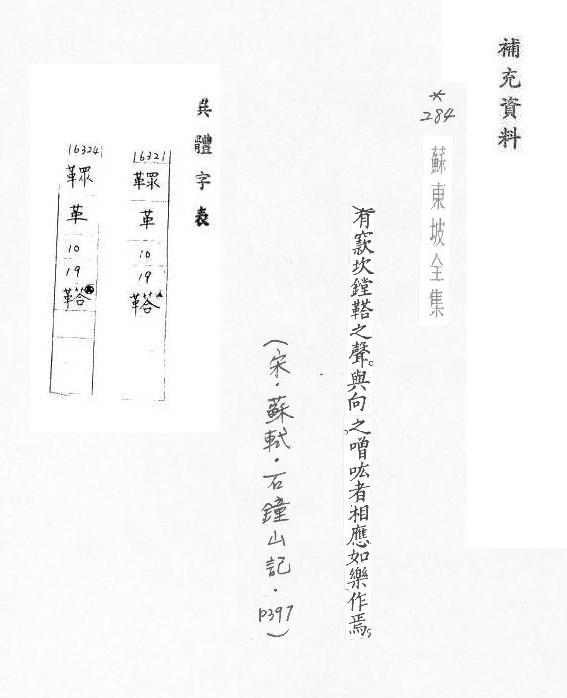 補充資料
*
284
蘇東坡全集
有窾坎鏜鞳之聲。與向之噌吰者相應。如樂作焉。
(宋・蘇軾・石鐘山記・p397)
異體字表
16321
革
10
19
鞳
16324
革
10
19
鞳